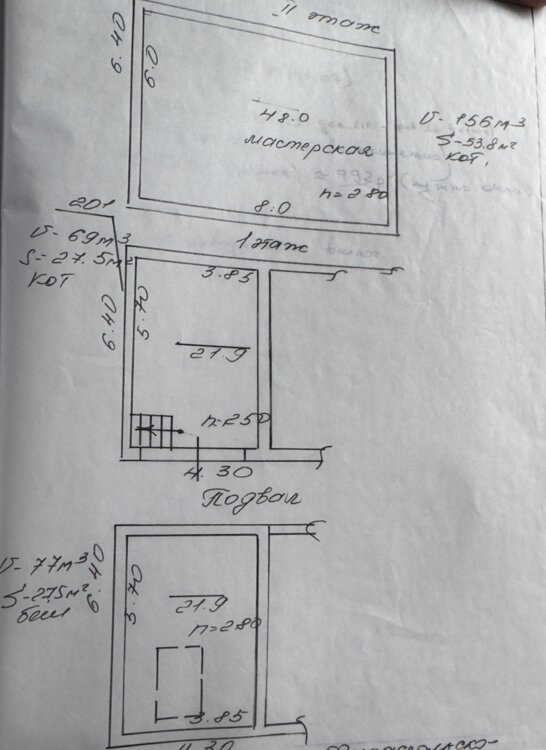 II этаж
6.40
6.0
48.0
мастерская
h=2.80
8.0
V-156м3
S-53.8м²
кот.
201
V-69м3
S-27.5м²
кот
1 этаж
3.85
6.40
5.70
21.9
h=250
4.30
Подвал
V-77м3
S-27.5м²
6.40
5.70
21.9
h=2.80
3.85
4.30